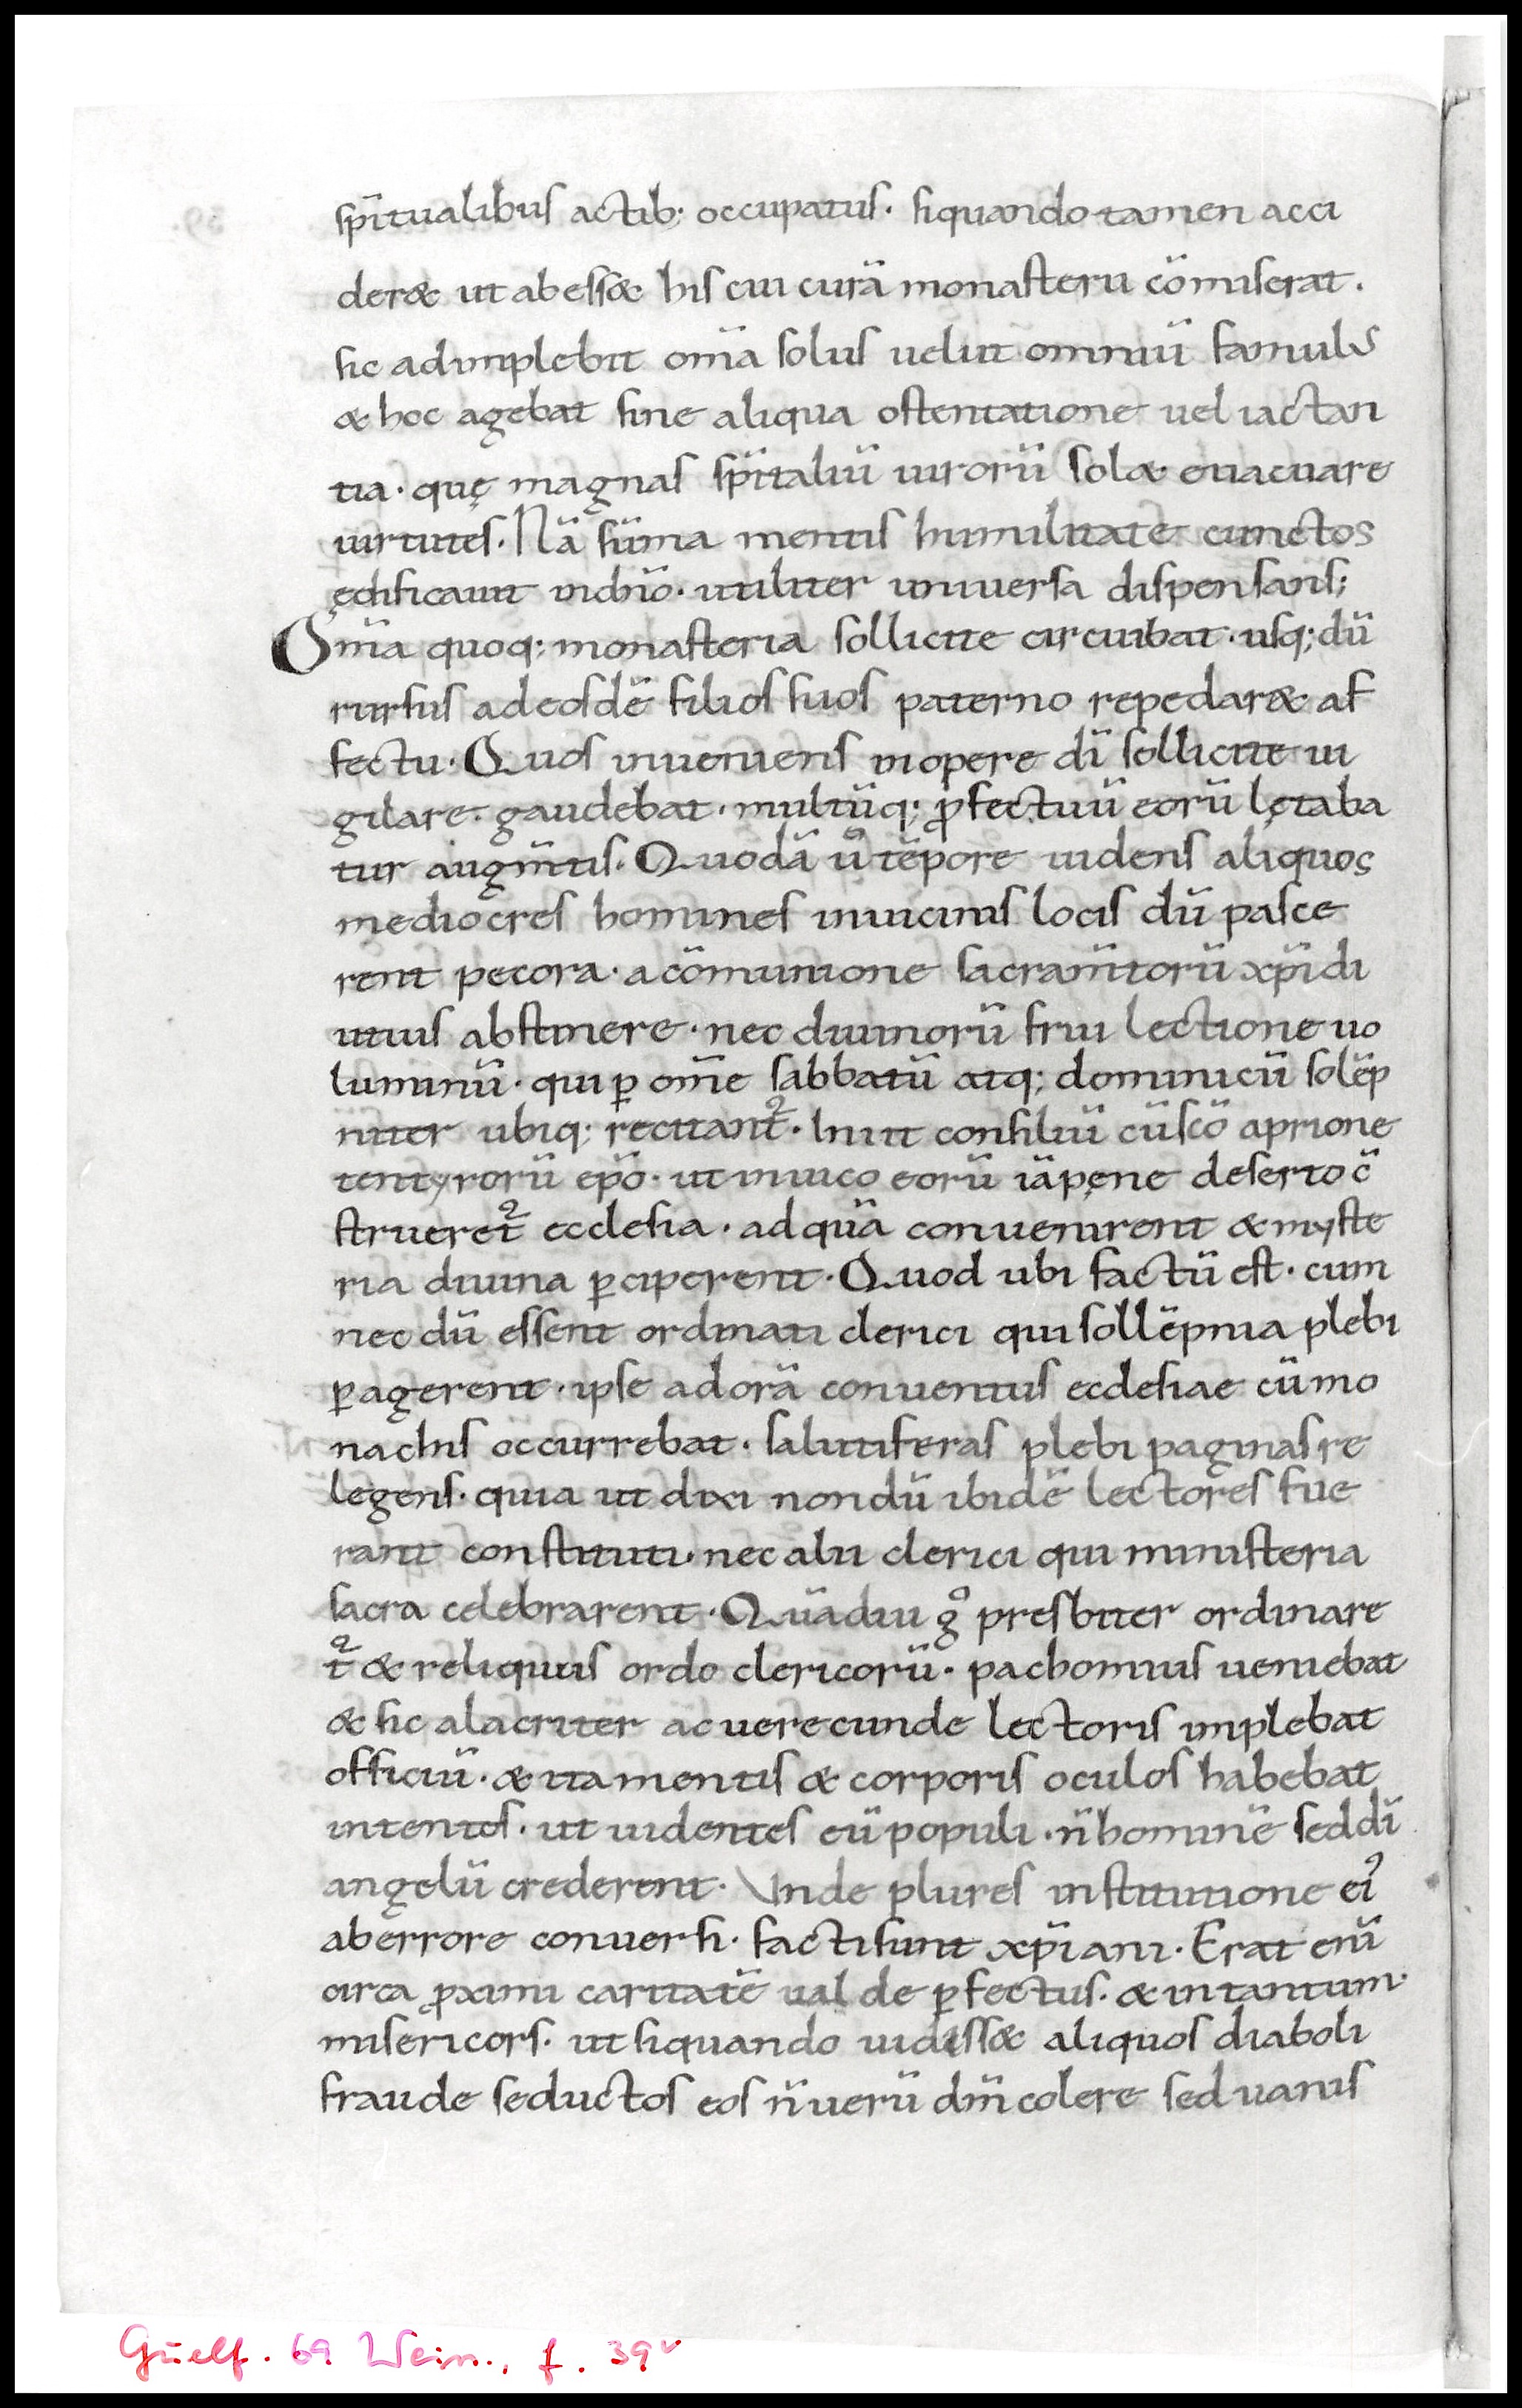 sp̄itualibus actib; occupatus. siquando tamen acci
der& ut abess& his cui curā monasterii cōmiserat.
sic adimplebit om̄a solus uelut omniū famuls
& hoc agebat sine aliqua ostentatione uel iactan
tia. quę magnas sp̄italiū uirorū sol& euacuare
uirtutes. Nā sūma mentis humilitate cunctos
ędificauit indn̄o. utiliter uniuersa dispensans;
Om̄a quoq; monasteria sollicite circuibat. usq; dū
rursus adeosdē filios suos paterno repedar& af
fectu. Quos inueniens inopere dī sollicite ui
gilare. gaudebat. multūq; ꝓfectuū eorū lętaba
tur augm̄tis. Quodā ū tēpore uidens aliquos
mediocres homines inuicinis locis dū pasce
rent pecora. acōmunione sacram̄torū xp̄i di
utius abstinere. nec diuinorū frui lectione uo
luminū. qui ꝑ om̄e sabbatū atq; dominicū solēp
niter ubiq; recitant᷑. Iniit consiliū cūsc̄o aprione
tentyrorū ep̄o. ut inuico eorū iāpęne deserto c̄
strueret᷑ ecclesia. adquā conuenirent & myste
ria diuina ꝑciperent. Quod ubi factū est. cum
nec dū essent ordinati clerici qui sollēpnia plebi
ꝑagerent. ipse adorā conuentus ecclesiae cūmo
nachis occurrebat. salutiferas plebi paginas re
legens. quia ut dixi nondū ibidē lectores fue
rant constituti. nec alii clerici qui ministeria
sacra celebrarent. Quādiu gͦ presbiter ordinare
t᷑ & reliquus ordo clericorū. pachomius ueniebat
& sic alacriter ac uerecunde lectoris implebat
officiū. & ita mentis & corporis oculos habebat
intentos. ut uidentes eū populi. n̄ hominē sed dī
angelū crederent. Unde plures institutione ei᾽
aberrore conuersi. facti sunt xp̄iani. Erat enī
circa ꝓximi caritatē ualde ꝑfectus. & intantum
misericors. ut siquando uidiss& aliquos diaboli
fraude seductos eos n̄ uerū dm̄ colere sed uanis
Guelf. 69 Weiss., f. 39v